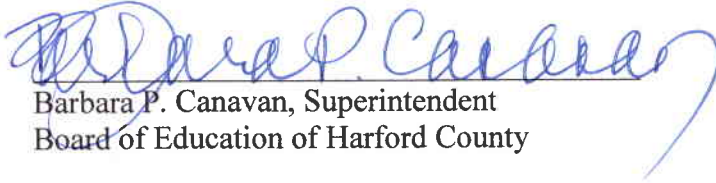 Barbara P. Canavan
Barbara P. Canavan, Superintendent
Board of Education of Harford County